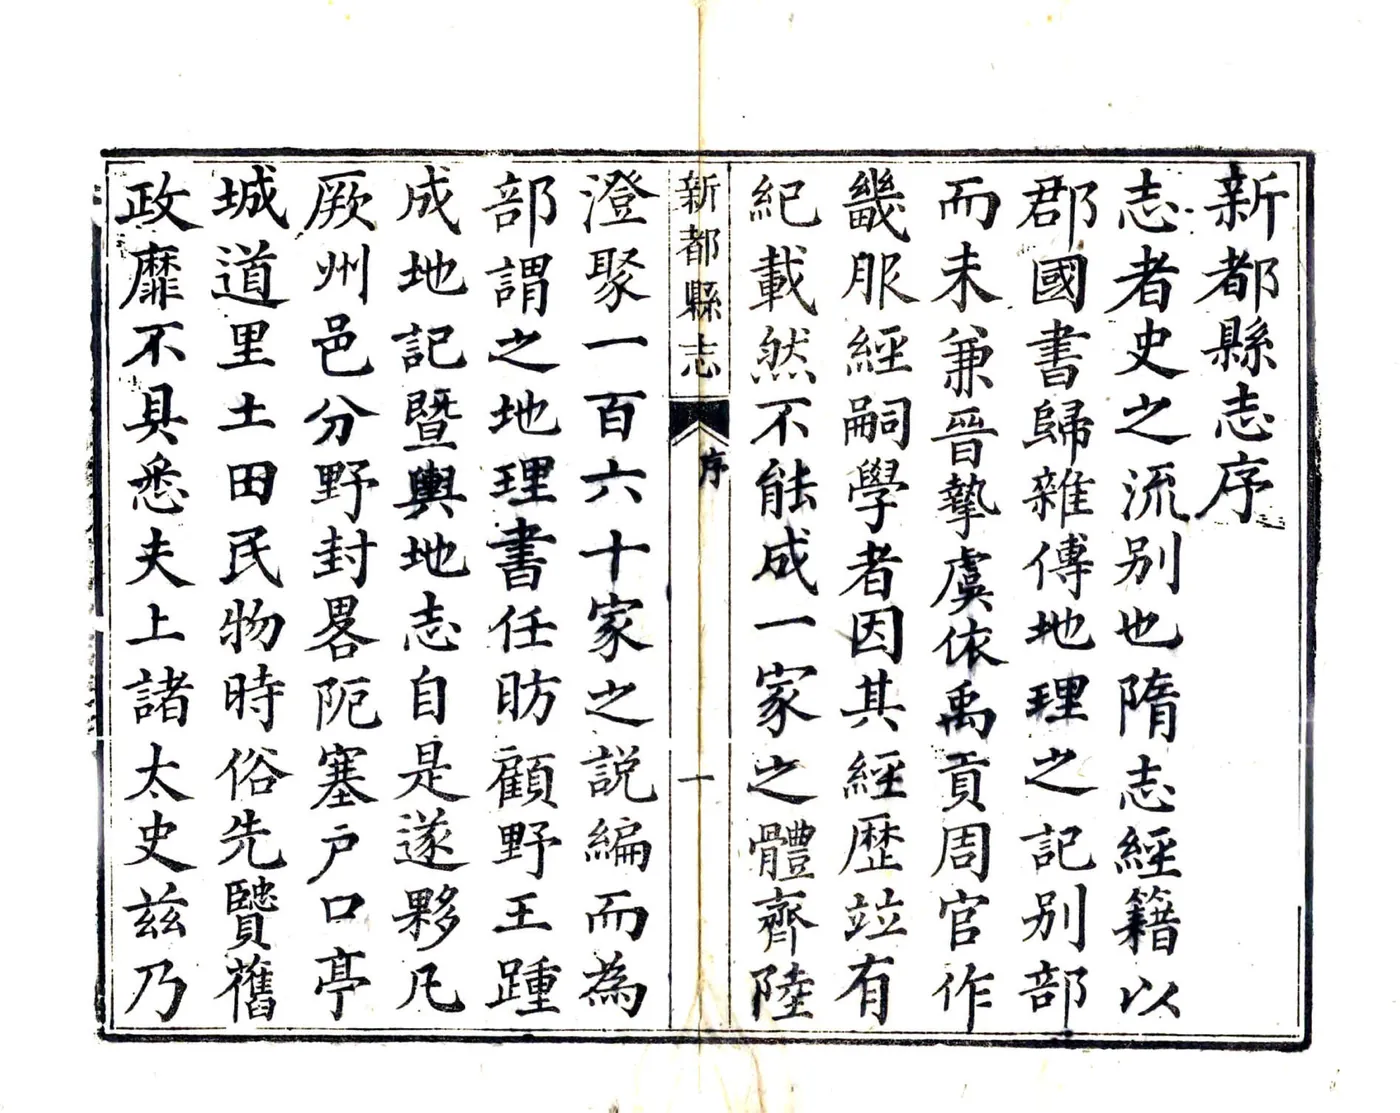 新都縣志序
志者史之流别也隋志經籍以
郡國書歸雜傳地理之記别部
而未兼晉摯虞依禹貢周官作
畿服經嗣學者因其經歷竝有
紀載然不能成一家之體齊陸
新都縣志 序 一
澄聚一百六十家之說編而為
部謂之地理書任昉顧野王踵
成地記暨輿地志自是遂夥凡
厥州邑分野封畧阨塞户口亭
城道里土田民物時俗先賢舊
政靡不具悉夫上諸太史兹乃